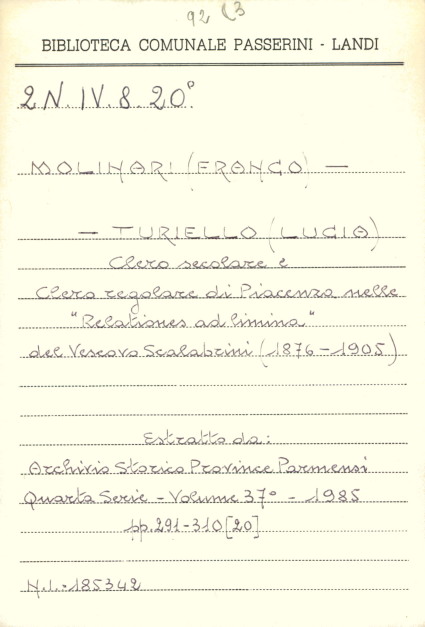 92 (3
BIBLIOTECA COMUNALE PASSERINI - LANDI
2N.IV.8.20°
MOLINARI (FRANCO) —
— TURIELLO (LUCIA)
Clero secolare e
Clero regolare di Piacenza nelle
"Relationes ad limina"
del Vescovo Scalabrini (1876-1905)
Estratto da:
Archivio Storico Province Parmensi
Quarta Serie - Volume 37° - 1985
pp. 291-310 [20]
N.I.-185342